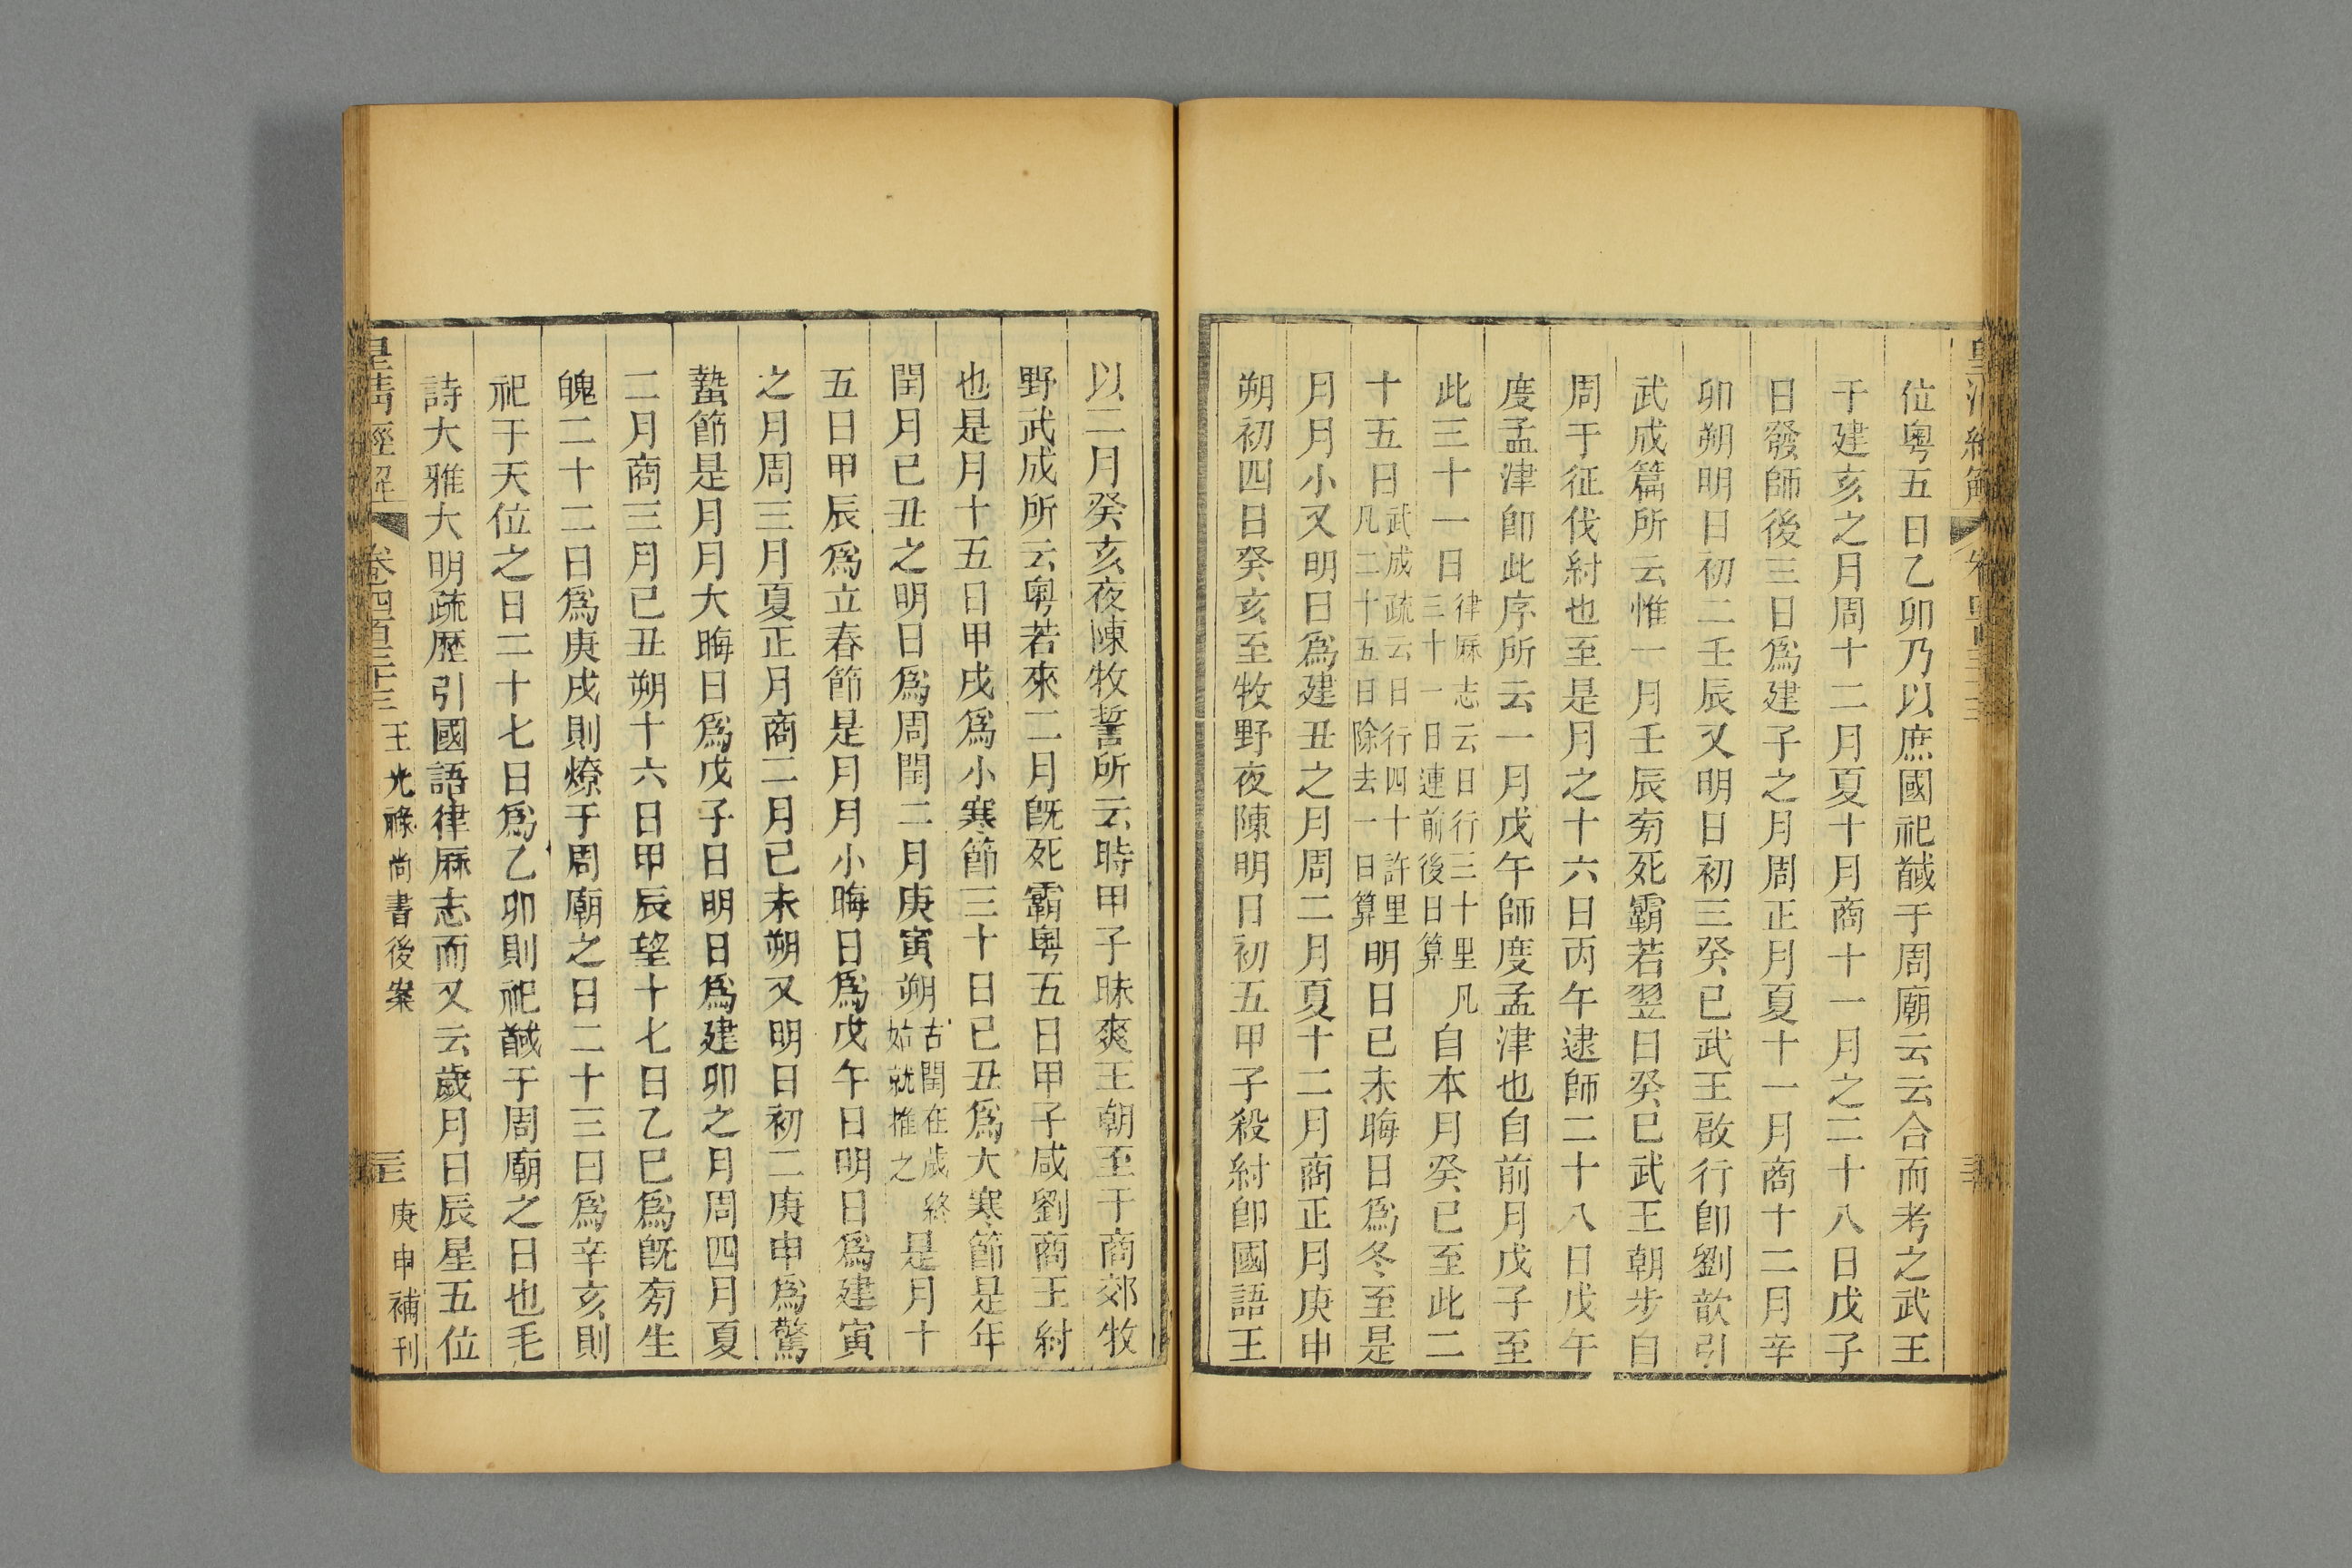 位粤五日乙卯乃以庶國祀馘于周廟云云合而考之武王
于建亥之月周十二月夏十月商十一月之二十八日戊子
日發師後三日爲建子之月周正月夏十一月商十二月辛
卯朔明日初二壬辰又明日初三癸巳武王啟行卽劉歆引
武成篇所云惟一月壬辰旁死霸若翌日癸巳武王朝步自
周于征伐紂也至是月之十六日丙午逮師二十八日戊午
度孟津卽此序所云一月戊午師度孟津也自前月戊子至
此三十一日律厤志云日行三十里凡三十一日連前後日算自本月癸巳至此二
十五日武成疏云日行四十許里凡二十五日除去一日算明日已未晦日爲冬至是
月月小又明日爲建丑之月周二月夏十二月商正月庚申
朔初四日癸亥至牧野夜陳明日初五甲子殺紂卽國語王
以二月癸亥夜陳牧誓所云時甲子昧爽王朝至于商郊牧
野武成所云粤若來二月旣死霸粤五日甲子咸劉商王紂
也是月十五日甲戌爲小寒節三十日已丑爲大寒節是年
閏月已丑之明日爲周閏二月庚寅朔古閏在歲終姑就推之是月十
五日甲辰爲立春節是月月小晦日爲戊午日明日爲建寅
之月周三月夏正月商二月已未朔又明日初二庚申爲驚
蟄節是月月大晦日爲戊子日明日爲建卯之月周四月夏
二月商三月已丑朔十六日甲辰望十七日乙巳爲旣旁生
魄二十二日爲庚戌則燎于周廟之日二十三曰爲辛亥則
祀于天位之日二十七日爲乙卯則祀馘于周廟之日也毛
詩大雅大明疏歷引國語律厤志而又云歲月日辰星五位
皇清經解 卷四百三十三 王光祿尚書後案 庚申補刊